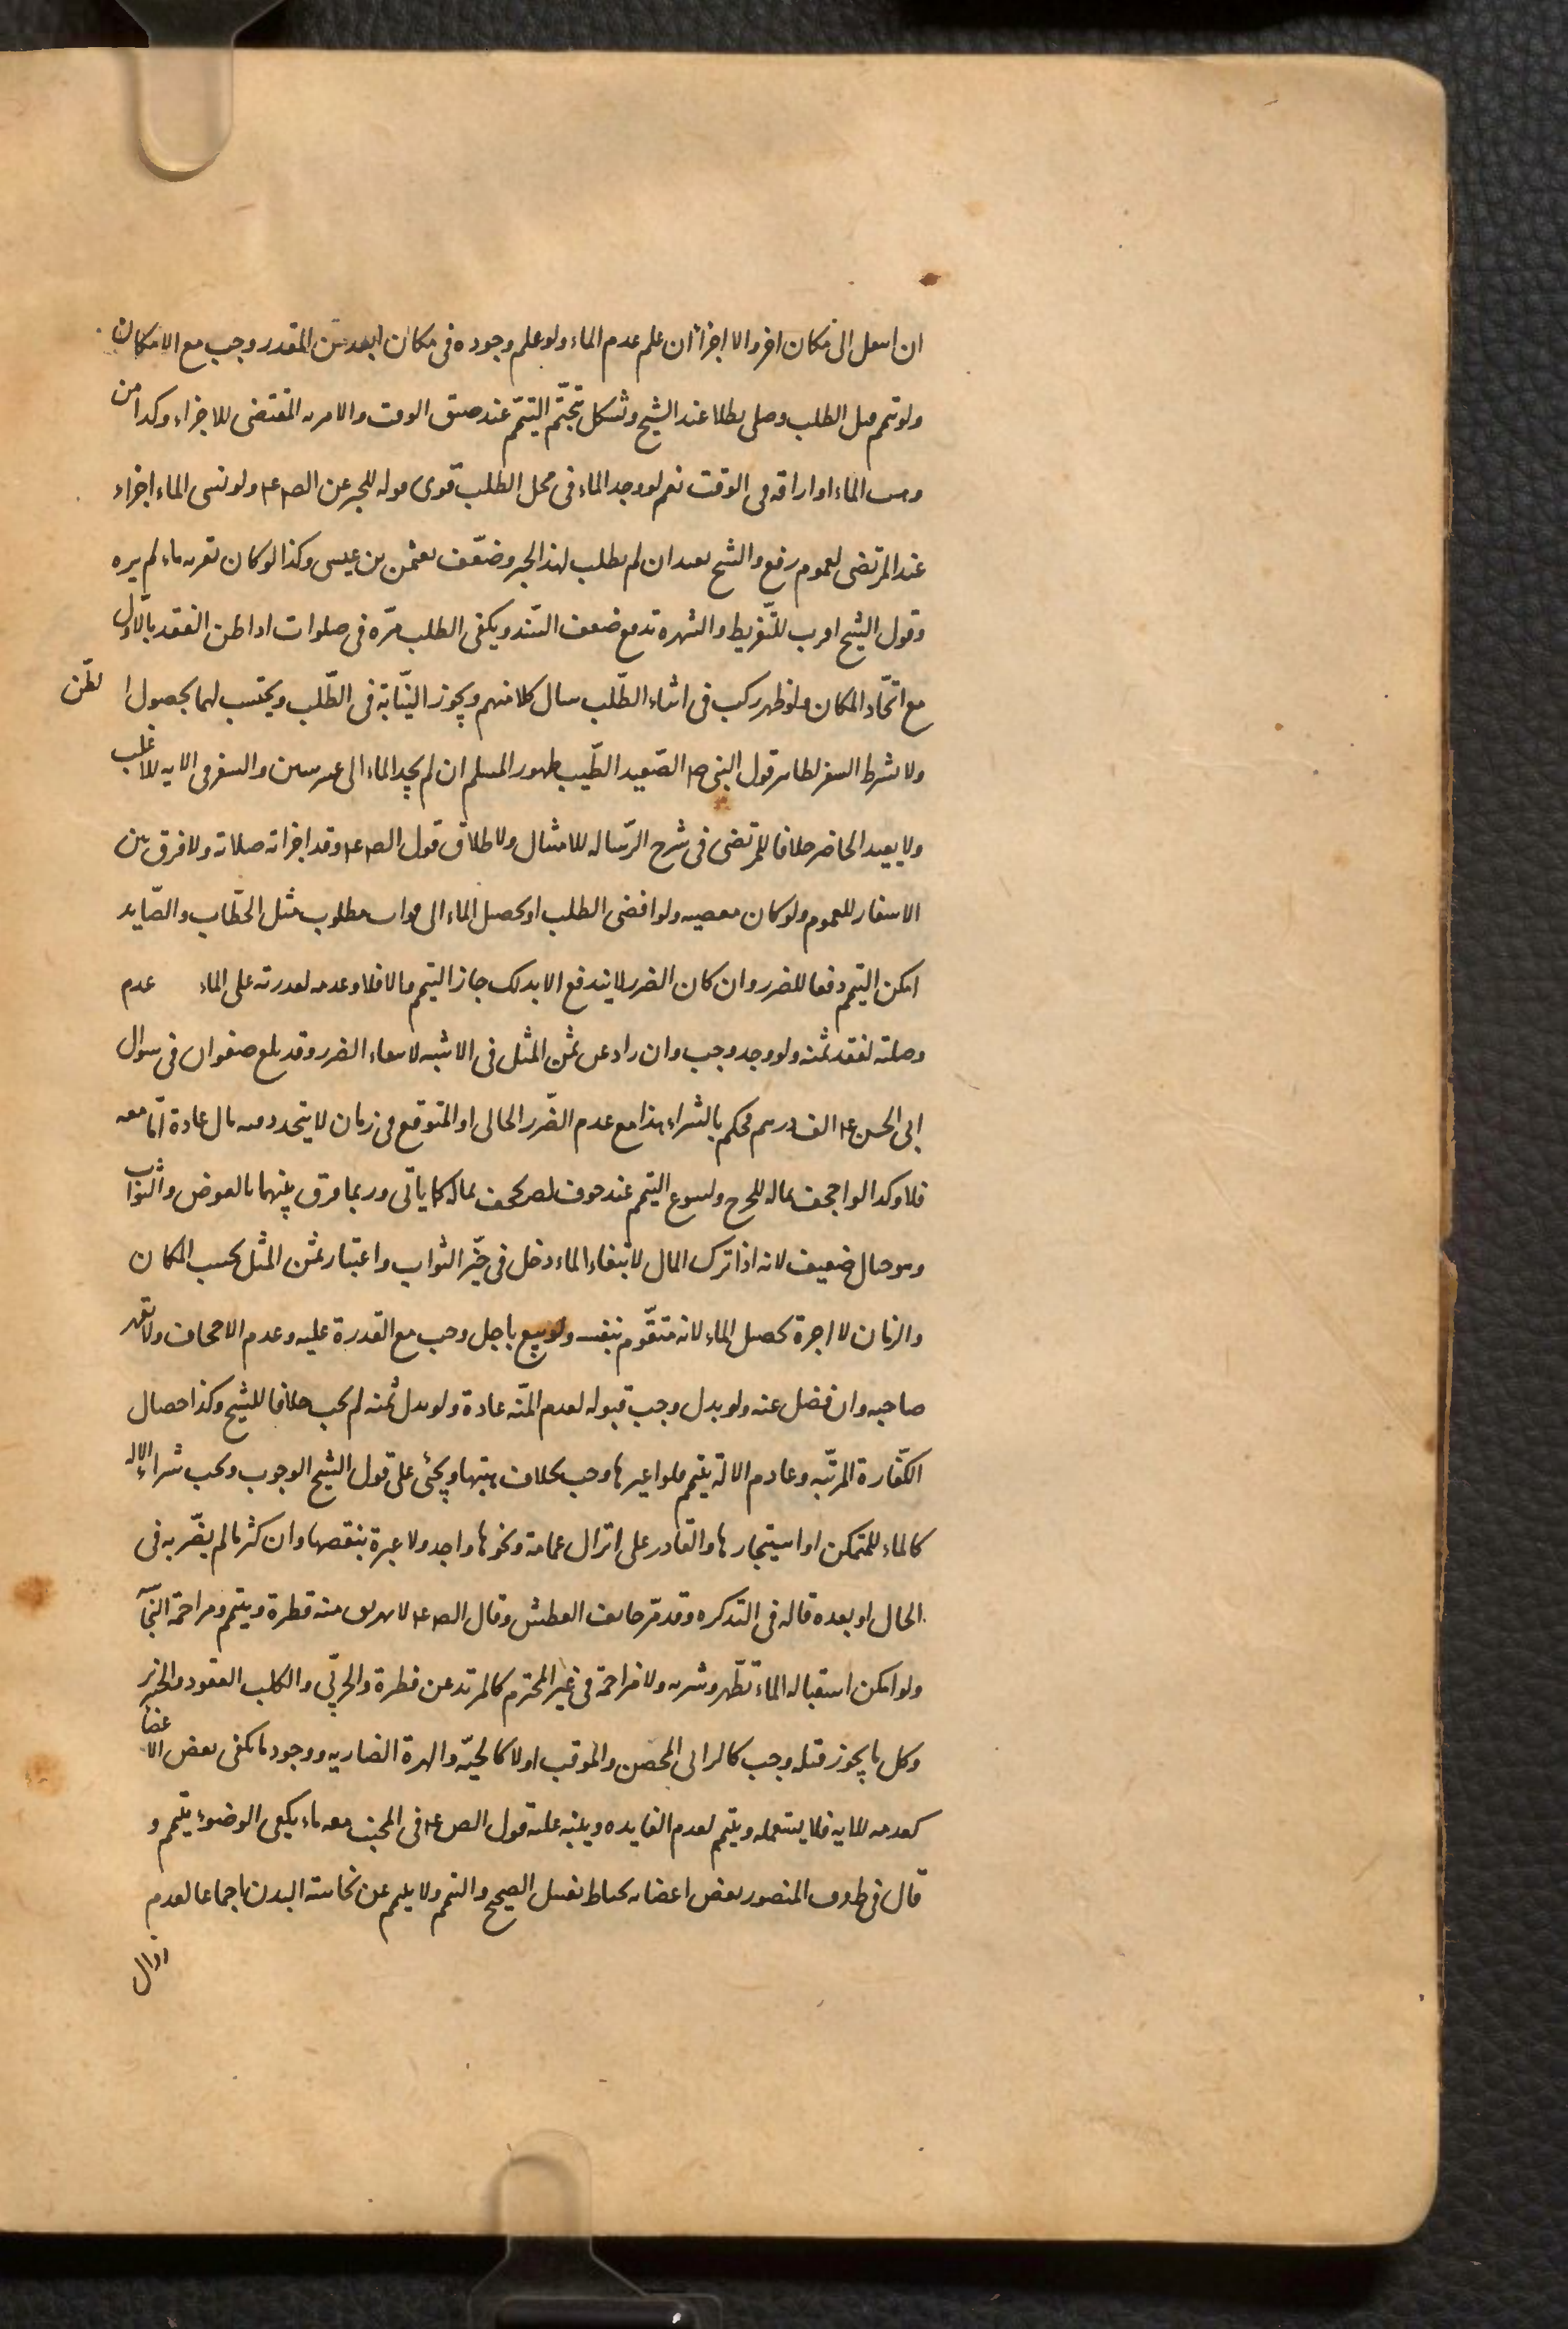 ان اسعل الى مكان اخر والا اجزأ ان علم عدم الماء ولو علم وجوده فى مكان ابعد من المقدر وجب مع الامكان
ولو تمم مبل الطلب وصلى بطلا عند الشيخ وشكل بتحتّم التيمّم عند ضيق الوقت والامر به المقتضى للاجزاء وكذا من
وهب الماء او اراقه فى الوقت نعم لو وجد الماء فى محل الطلب قوى قوله للخبر عن الص ع م ولو نسى الماء اجزاء
عند المرتضى لعموم رفع والشيخ يعيد ان لم يطلب لهذا الخبر وضعّف بعثمن بن عيسى وكذا لو كان بقربه ماء لم يره
وقول الشيخ اقرب للتّفريط والشهره تدفع ضعف السّند ويكفى الطلب مرّه فى صلوات اذا ظن الفقد بالاول
مع اتّحاد المكان ولو ظهر ركب فى اثناء الطّلب سال كلا منهم ويجوز النيّابة فى الطّلب ويحتسب لهما بحصول الظّن
ولا يشترط السفر لظاهر قول النبى ص م الصّعيد الطّيب طهور المسلم ان لم يجد الماء الى عشر سنين والسفر فى الايه للاغلب
ولا يعيد الحاضر خلافا للمرتضى فى شرح الرّساله للامتثال ولاطلاق قول الص ع م وقد اجزاته صلاته ولا فرق بين
الاسفار للعموم ولو كان معصيه ولو افضى الطلب او تحصيل الماء الى فوات مطلوب مثل الحطّاب والصّايد
امكن التيمم دفعا للضرر وان كان الضرر لا يندفع الا بذلك جاز التيمم والا فلا وعدمه لقدرته على الماء عدم
وصلته لفقد ثمنه ولو وجد وجب وان زاد عن ثمن المثل فى الاشبه لانتفاء الضرر وقد بلغ صفوان فى سوال
ابى الحسن ع م الف درهم فحكم بالشراء هذا مع عدم الضّرر الحالى او المتوقع فى زمان لا يتجدد فيه مال عادة امّا معه
فلا وكذا لو اجحف بماله للحرج ولسوغ التيمم عند خوف لص يجحف بماله كما ياتى وربما فرق بينهما بالعوض والثواب
وهو خيال ضعيف لانه اذا ترك المال لابتغاء الماء دخل فى حيّز الثواب واعتبار ثمن المثل بحسب المكان
والزمان لا اجرة تحصيل الماء لانه متقوّم بنفسه ولو بيع باجل وجب مع القدرة عليه وعدم الاجحاف ولا يقهر
صاحبه وان فضل عنه ولو بذل وجب قبوله لعدم المنّه عادة ولو بذل ثمنه لم يجب خلافا للشيخ وكذا خصال
الكفّارة المرتّبه وعادم الالة يتيمم فلو اعيرها وجب بخلاف هبتها ويجئ على قول الشيخ الوجوب ويجب شراء الاله
كالماء للمتمكن او استيجارها والقادر على انزال عمامة ونحوها واجد ولا عبرة بنقصها وان كثر ما لم يضّر به فى
الحال او بعده قاله فى التذكره وقد مرّ خايف العطش وقال الص ع م لا يهريق منه قطرة ويتيمم ومزاحمة النجآ
ولو امكن استقباله الماء تطّهر وشربه ولا مزاحمة فى غير المحترم كالمرتد عن فطرة والحربّى والكلب العقور والخنزير
وكل ما يجوز قتله وجب كالزانى المحصن والموقب او لا كالحيّه والهرة الضاريه ووجود ما يكفى بعض الاعضا
كعدمه للايه فلا يستعمله ويتيمم لعدم الفايده وينبه عليه قول الص ع م فى المجنب معه ماء يكفى الوضوء يتيمم و
قال فى ط وف المتضرر بعض اعضايه يحتاط بغسل الصحيح والتيمم ولا يتيمم عن نجاسته البدن اجماعا لعدم